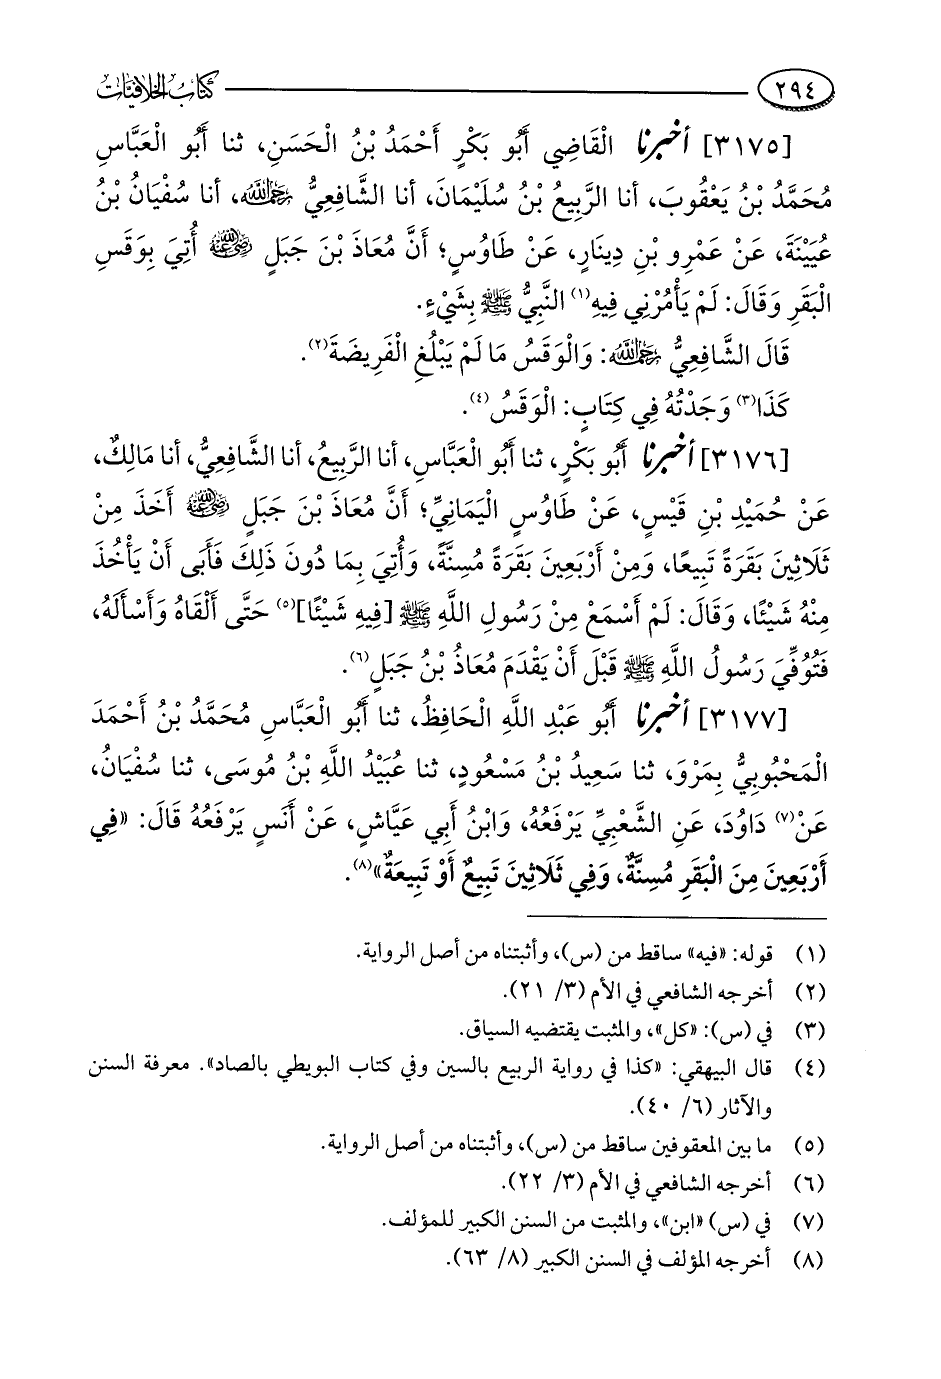 ٢٩٤ كتاب الخلافيات
[٣١٧٥] أخبرنا الْقَاضِي أَبُو بَكْرٍ أَحْمَدُ بْنُ الْحَسَنِ، ثنا أَبُو الْعَبَّاسِ
مُحَمَّدُ بْنُ يَعْقُوبَ، أنا الرَّبِيعُ بْنُ سُلَيْمَانَ، أنا الشَّافِعِيُّ رَحِمَهُ اللَّهُ، أنا سُفْيَانُ بْنُ
عُيَيْنَةَ، عَنْ عَمْرِو بْنِ دِينَارٍ، عَنْ طَاوُسٍ؛ أَنَّ مُعَاذَ بْنَ جَبَلٍ رضي الله عنه أُتِيَ بِوَقَسِ
الْبَقَرِ وَقَالَ: لَمْ يَأْمُرْنِي فِيهِ(١) النَّبِيُّ ﷺ بِشَيْءٍ.
قَالَ الشَّافِعِيُّ رَحِمَهُ اللَّهُ: وَالْوَقَسُ مَا لَمْ يَبْلُغِ الْفَرِيضَةَ(٢).
كَذَا(٣) وَجَدْتُهُ فِي كِتَابٍ: الْوَقَسُ(٤).
[٣١٧٦] أخبرنا أَبُو بَكْرٍ، ثنا أَبُو الْعَبَّاسِ، أنا الرَّبِيعُ، أنا الشَّافِعِيُّ، أنا مَالِكٌ،
عَنْ حُمَيْدِ بْنِ قَيْسٍ، عَنْ طَاوُسٍ الْيَمَانِيِّ؛ أَنَّ مُعَاذَ بْنَ جَبَلٍ رضي الله عنه أَخَذَ مِنْ
ثَلَاثِينَ بَقَرَةً تَبِيعًا، وَمِنْ أَرْبَعِينَ بَقَرَةً مُسِنَّةً، وَأُتِيَ بِمَا دُونَ ذَلِكَ فَأَبَى أَنْ يَأْخُذَ
مِنْهُ شَيْئًا، وَقَالَ: لَمْ أَسْمَعْ مِنْ رَسُولِ اللَّهِ ﷺ [فِيهِ شَيْئًا](٥) حَتَّى أَلْقَاهُ وَأَسْأَلَهُ،
فَتُوُفِّيَ رَسُولُ اللَّهِ ﷺ قَبْلَ أَنْ يَقْدَمَ مُعَاذُ بْنُ جَبَلٍ(٦).
[٣١٧٧] أخبرنا أَبُو عَبْدِ اللَّهِ الْحَافِظُ، ثنا أَبُو الْعَبَّاسِ مُحَمَّدُ بْنُ أَحْمَدَ
الْمَحْبُوبِيُّ بِمَرْوَ، ثنا سَعِيدُ بْنُ مَسْعُودٍ، ثنا عُبَيْدُ اللَّهِ بْنُ مُوسَى، ثنا سُفْيَانُ،
عَنْ(٧) دَاوُدَ، عَنِ الشَّعْبِيِّ يَرْفَعُهُ، وَابْنُ أَبِي عَيَّاشٍ، عَنْ أَنَسٍ يَرْفَعُهُ قَالَ: «فِي
أَرْبَعِينَ مِنَ الْبَقَرِ مُسِنَّةٌ، وَفِي ثَلَاثِينَ تَبِيعٌ أَوْ تَبِيعَةٌ»(٨).
(١) قوله: «فيه» ساقط من (س)، وأثبتناه من أصل الرواية.
(٢) أخرجه الشافعي في الأم (٣/ ٢١).
(٣) في (س): «كل»، والمثبت يقتضيه السياق.
(٤) قال البيهقي: «كذا في رواية الربيع بالسين وفي كتاب البويطي بالصاد». معرفة السنن
والآثار (٦/ ٤٠).
(٥) ما بين المعقوفين ساقط من (س)، وأثبتناه من أصل الرواية.
(٦) أخرجه الشافعي في الأم (٣/ ٢٢).
(٧) في (س) «ابن»، والمثبت من السنن الكبير للمؤلف.
(٨) أخرجه المؤلف في السنن الكبير (٨/ ٦٣).